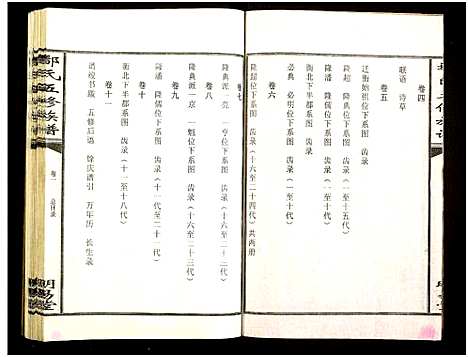 卷四
联语 诗草
卷五
迁衡始祖位下系图 齿录
隆超 隆典位下系图 齿录（一至十五代）
隆潘 隆儒位下系图 齿录
衡北下半都系图 齿录（一至十代）
必典 必明位下系图 齿录
卷六
隆超位下系图 齿录（十六至二十四代）共两册
卷七
隆典派一亮 一亨位下系图 齿录（十六至二十三代）
卷八
隆典派一京 一魁位下系图 齿录（十六至二十三代）
卷九
隆潘 隆儒位下系图 齿录（十一代至二十一代）
卷十
衡北下半都系图 齿录（十一至十八代）
卷十一
谱校书版 五修后语 馀庆谱引 万年历 长生录
邹氏五修族谱
卷一
总目录
明易堂